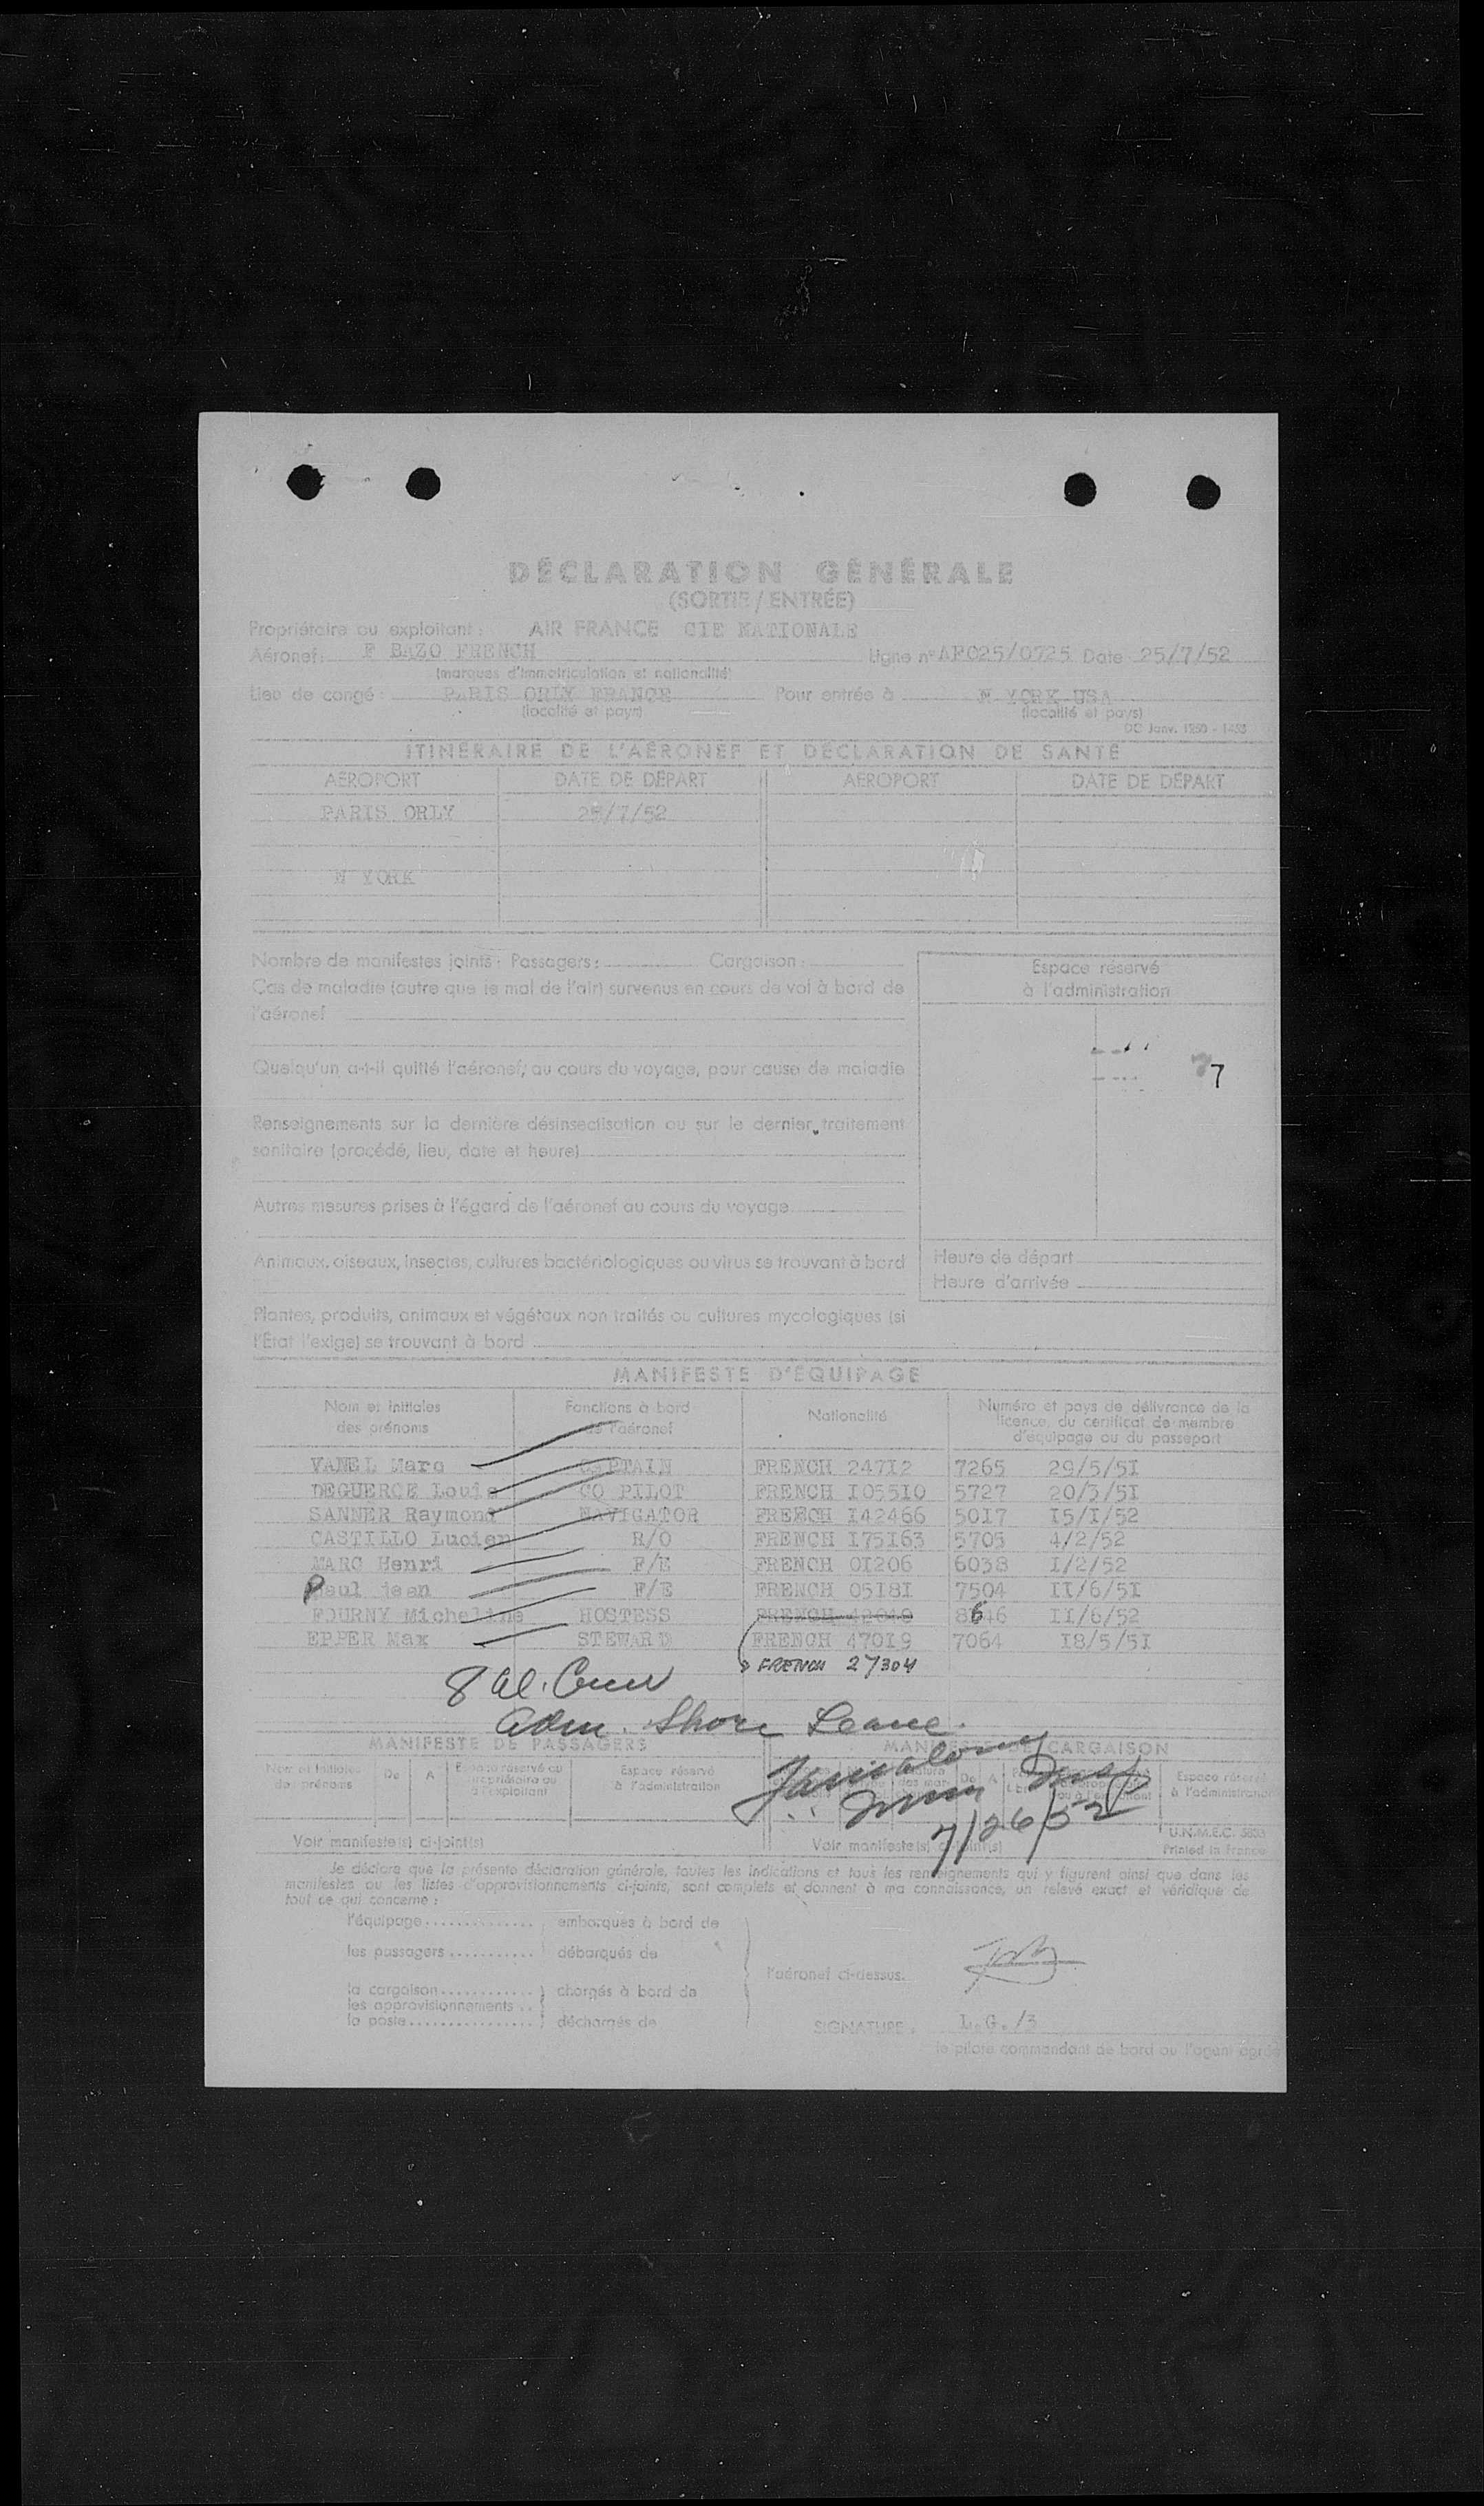 7
DÉCLARATION GÉNÉRALE
(SORTIE / ENTRÉE)
Propriétaire ou exploitant : AIR FRANCE CIE NATIONALE
Aéronef : F BAZO FRENCH Ligne n° AF025/0725 Date 25/7/52
(marques d'immatriculation et nationalité)
Lieu de congé : PARIS ORLY FRANCE Pour entrée à N YORK USA
(localité et pays) (localité et pays)
DC Janv. 1950 - 1453
ITINÉRAIRE DE L'AÉRONEF ET DÉCLARATION DE SANTÉ
AÉROPORT DATE DE DÉPART AÉROPORT DATE DE DÉPART
PARIS ORLY 25/7/52
N YORK
Nombre de manifestes joints - Passagers : Cargaison :
Cas de maladie (autre que le mal de l'air) survenus en cours de vol à bord de
l'aéronef
Quelqu'un a-t-il quitté l'aéronef, au cours du voyage, pour cause de maladie
Renseignements sur la dernière désinsectisation ou sur le dernier traitement
sanitaire (procédé, lieu, date et heure)
Autres mesures prises à l'égard de l'aéronef au cours du voyage
Animaux, oiseaux, insectes, cultures bactériologiques ou virus se trouvant à bord
Plantes, produits, animaux et végétaux non traités ou cultures mycologiques (si
l'État l'exige) se trouvant à bord
Espace réservé
à l'administration
Heure de départ
Heure d'arrivée
MANIFESTE D'ÉQUIPAGE
Nom et initiales des prénoms Fonctions à bord de l'aéronef Nationalité Numéro et pays de délivrance de la licence, du certificat de membre d'équipage ou du passeport
VANEL Marc CAPTAIN FRENCH 24712 7265 29/5/51
DEGUERCE Louis CO PILOT FRENCH 105510 5727 20/3/51
SANNER Raymond NAVIGATOR FRENCH 142466 5017 15/1/52
CASTILLO Lucien R/O FRENCH 175163 5705 4/2/52
MARC Henri F/E FRENCH 01206 6038 1/2/52
Paul jean F/E FRENCH 05181 7504 11/6/51
FOURNY Micheline HOSTESS FRENCH 8646 11/6/52
EPPER Max STEWARD FRENCH 47019 7064 18/5/51
FRENCH 27304
8 al. Crew
adm. Shore Leave.
MANIFESTE DE PASSAGERS MANIFESTE DE CARGAISON
Nom et initiales des prénoms De A Espace réservé au propriétaire ou à l'exploitant Espace réservé à l'administration
De A Espace réservé à l'administration
Imm Insp
7/26/52
Voir manifeste(s) ci-joint(s) Voir manifeste(s) ci-joint(s)
U.N.M.E.C.
Printed in France
Je déclare que la présente déclaration générale, toutes les indications et tous les renseignements qui y figurent ainsi que dans les
manifestes ou les listes d'approvisionnements ci-joints, sont complets et donnent à ma connaissance, un relevé exact et véridique de
tout ce qui concerne :
l'équipage.............. embarqués à bord de
les passagers........... débarqués de
l'aéronef ci-dessus.
la cargaison............ chargés à bord de
les approvisionnements ..
la poste................ déchargés de
SIGNATURE : L.G./3
le pilote commandant de bord ou l'agent agréé